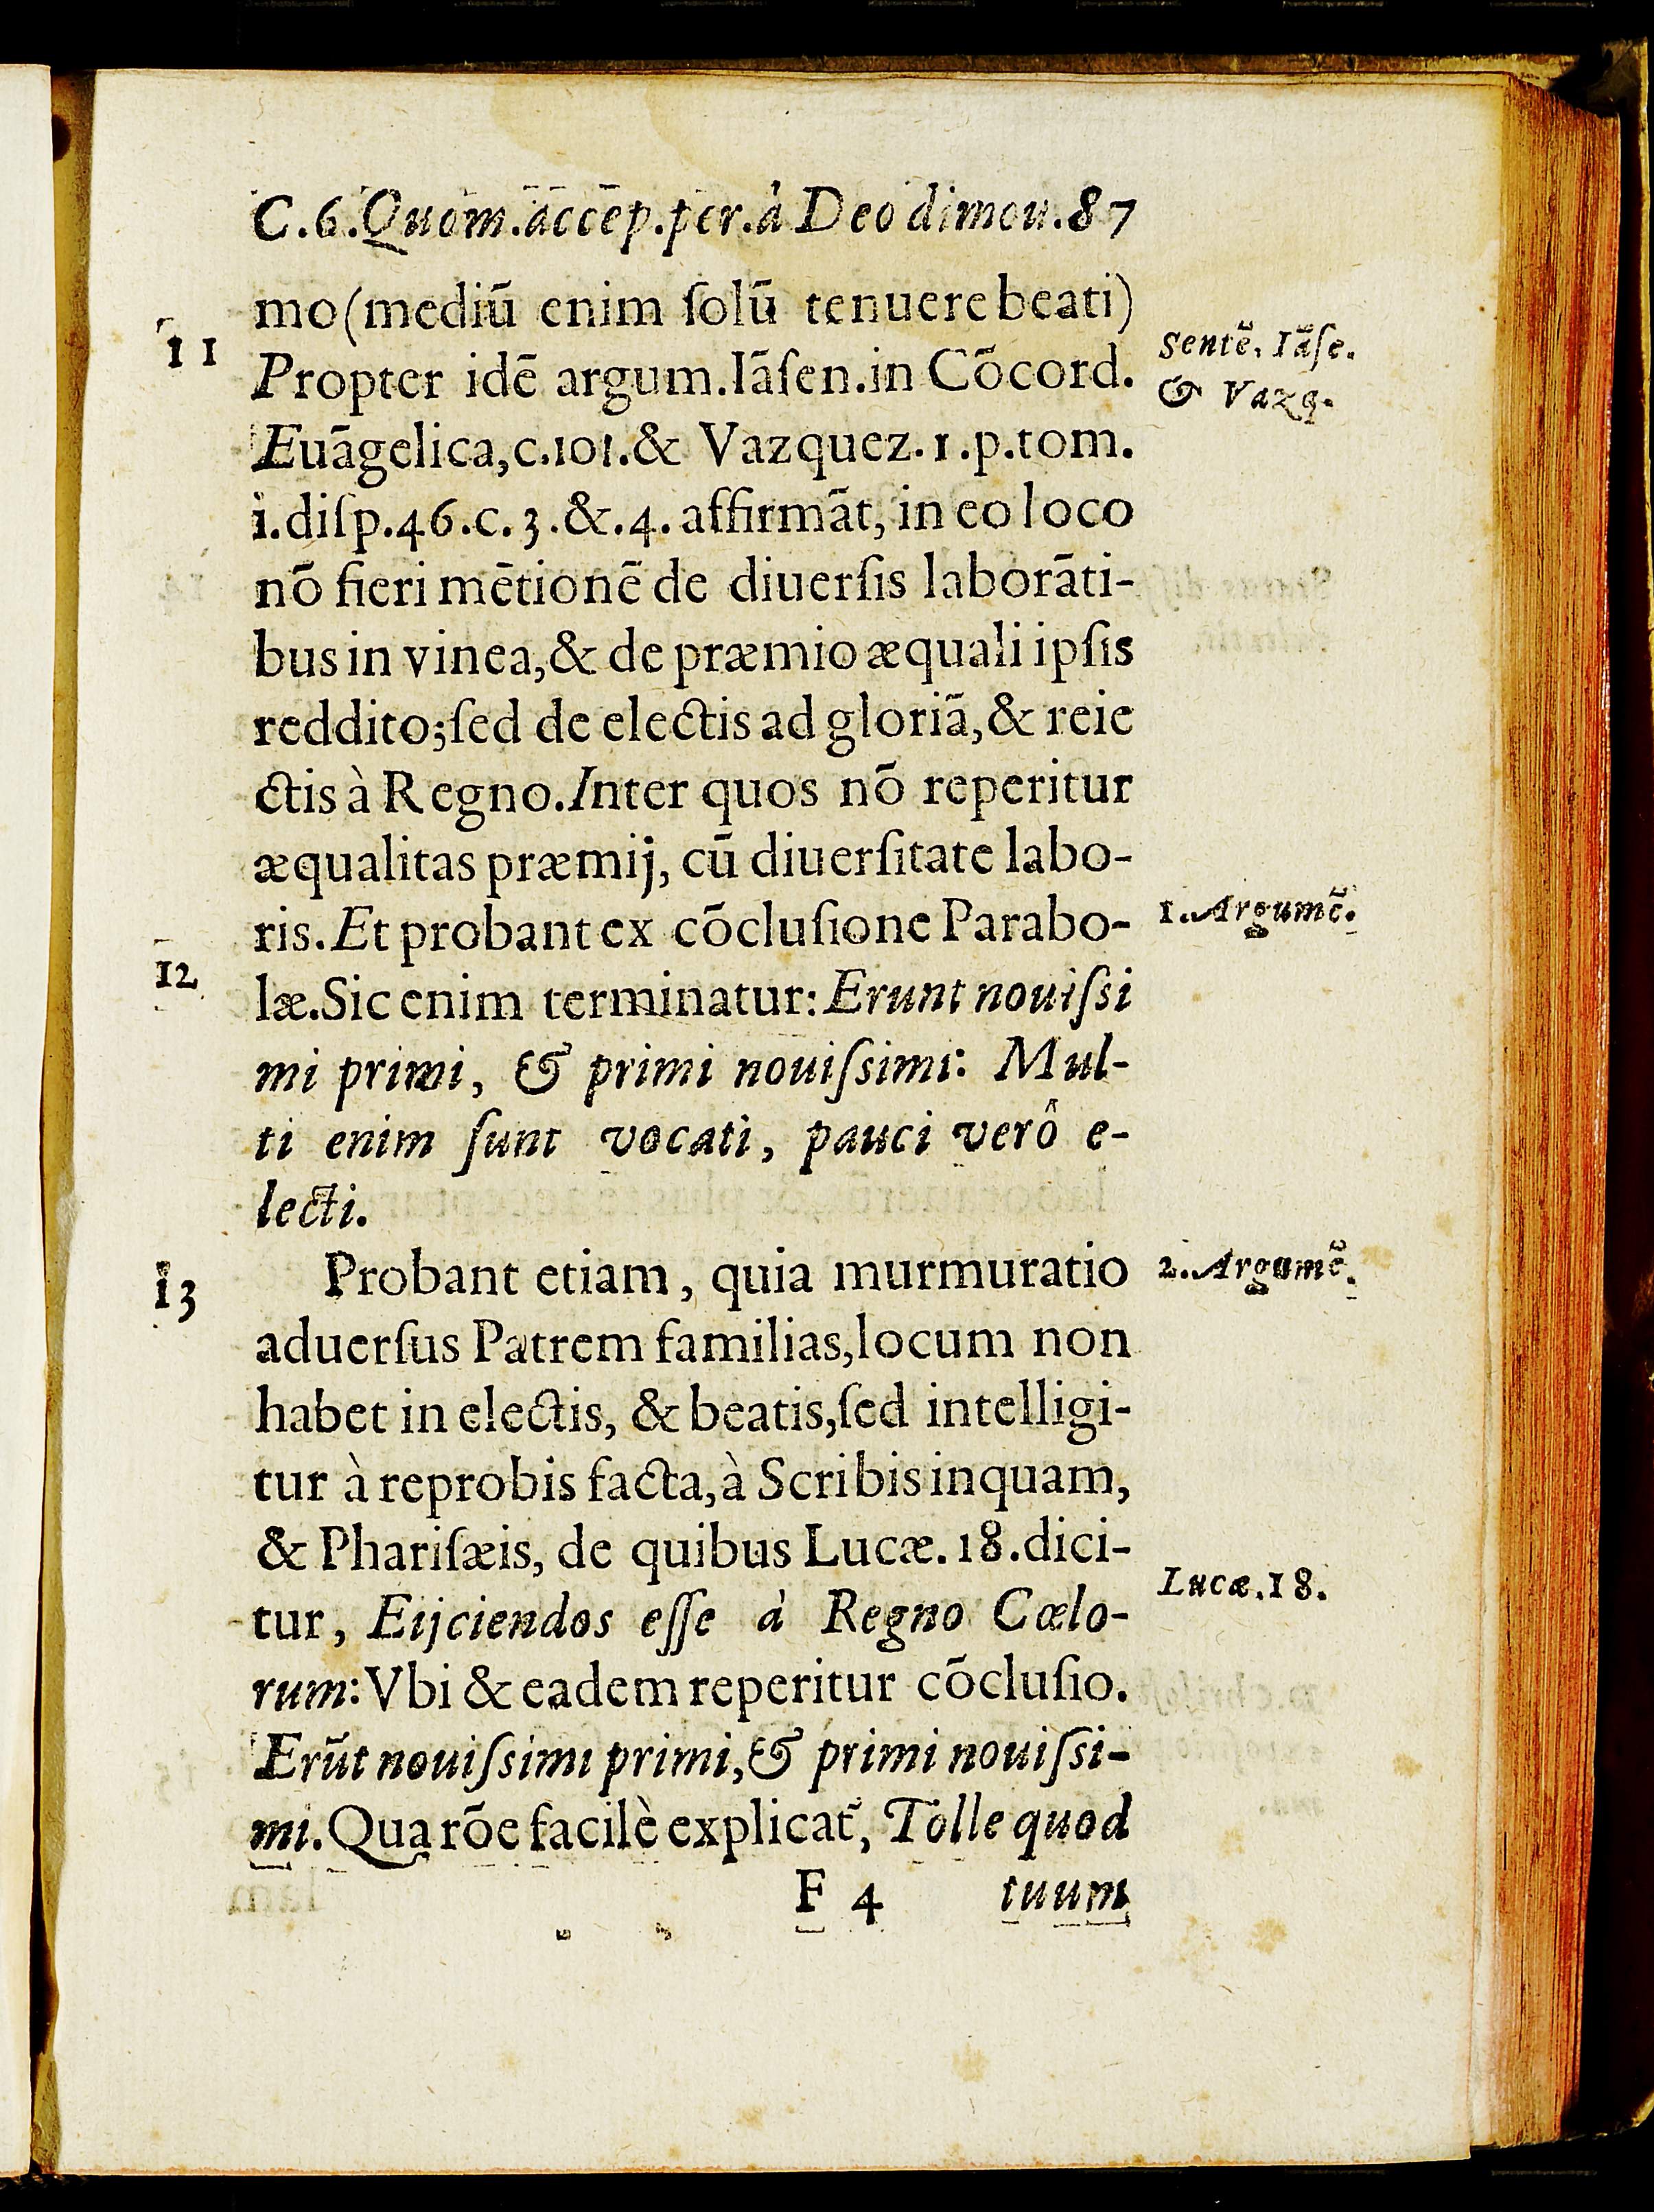 C.6.Quom.accep.per.à Deo dimou.87
mo(mediū enim ſolū tenuere beati)
11
Propter idē argum.Iãſen.in Cõcord.
Sentẽ. Iãſe.
& Vazq.
Euãgelica,c.101.& Vazquez.1.p.tom.
1.diſp.46.c.3.&.4. affirmãt, in eo loco
nõ fieri mētionē de diuerſis laborãti-
bus in vinea,& de præmio æquali ipſis
reddito;ſed de electis ad gloriã,& reie
ctis à Regno.Inter quos nõ reperitur
æqualitas præmij, cū diuerſitate labo-
ris.Et probant ex cõcluſione Parabo-
1.Argumẽ.
12
læ.Sic enim terminatur:Erunt nouiſsi
mi primi, & primi nouiſsimi: Mul-
ti enim ſunt vocati, pauci verô e-
lecti.
13
Probant etiam, quia murmuratio
2.Argumẽ.
aduerſus Patrem familias,locum non
habet in electis, & beatis,ſed intelligi-
tur à reprobis facta,à Scribis inquam,
& Phariſæis, de quibus Lucæ.18.dici-
Lucæ.18.
tur, Eijciendos eſſe à Regno Cœlo-
rum:Vbi & eadem reperitur cõcluſio.
Erūt nouiſsimi primi,& primi nouiſsi-
mi.Qua rõe facilè explicat᷑, Tolle quod
F 4
tuum